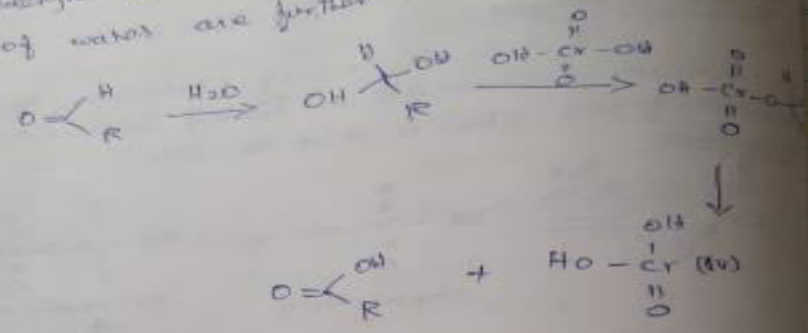 of water are further
O = H R H2O OH H OH R OH - Cr - OH O O OH - Cr - O O O
O = OH R + HO - Cr (IV) OH O